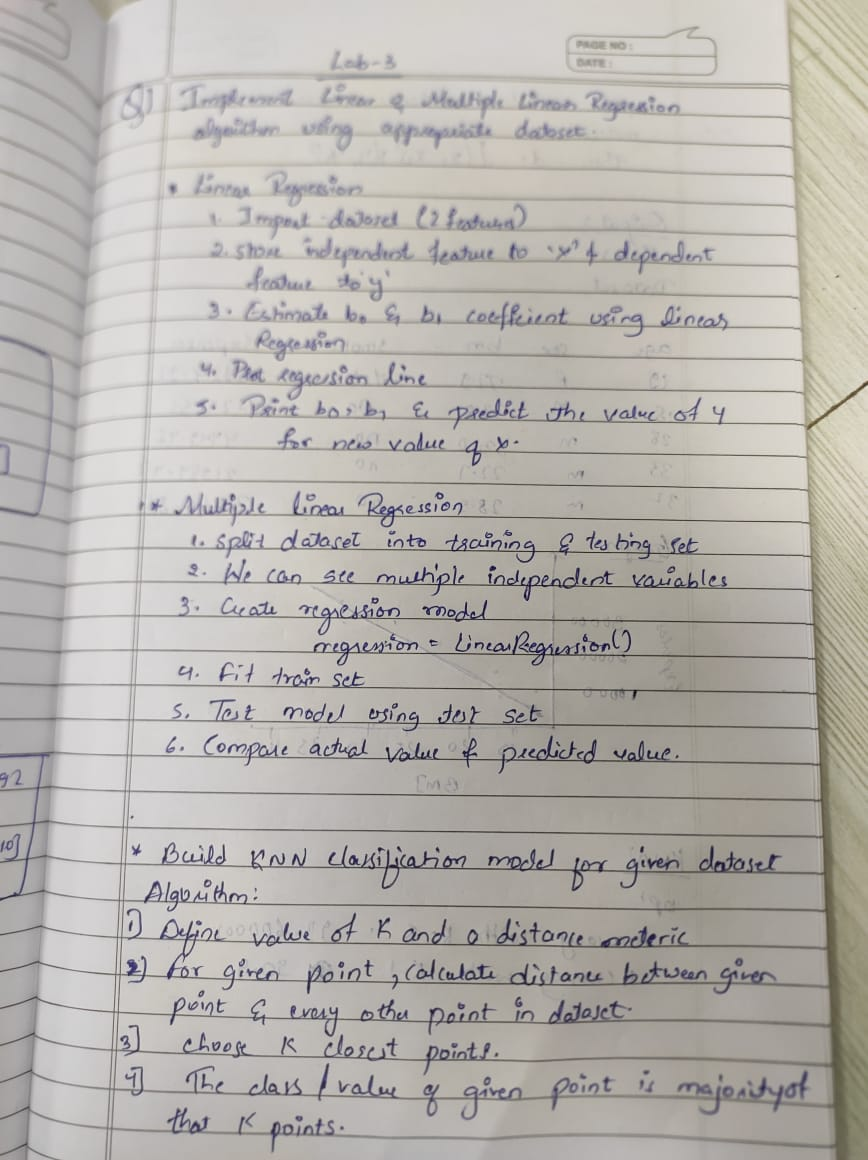 PAGE NO :
DATE :
Lab-3
Q) Implement Linear & Multiple Linear Regression
algorithm using appropriate dataset.
• Linear Regression
1. Import dataset (2 features)
2. Store independent feature to 'x' & dependent
feature to 'y'
3. Estimate b0 & b1 coefficient using linear
Regression
4. Plot regression line
5. Print b0, b1 & predict the value of y
for new value of x.
* Multiple linear Regression
1. Split dataset into training & testing set
2. We can see multiple independent variables
3. Create regression model
regression = LinearRegression()
4. Fit train set
5. Test model using test set
6. Compare actual value & predicted value.
92
10]
* Build KNN classification model for given dataset
Algorithm:
1) Define value of K and a distance meteric
2) For given point, calculate distance between given
point & every other point in dataset.
3] choose K closest points.
4] The class / value of given point is majority of
that K points.